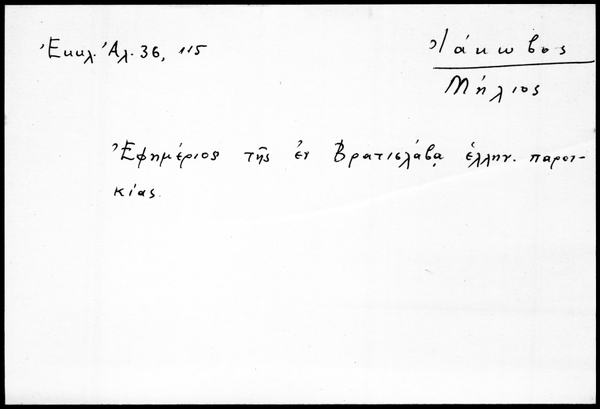 Ἐκκλ. Ἀλ. 36, 115
Ἰάκωβος
Μήλιος
Ἐφημέριος τῆς ἐν Βρατισλάβᾳ ἑλλην. παροι-
κίας.